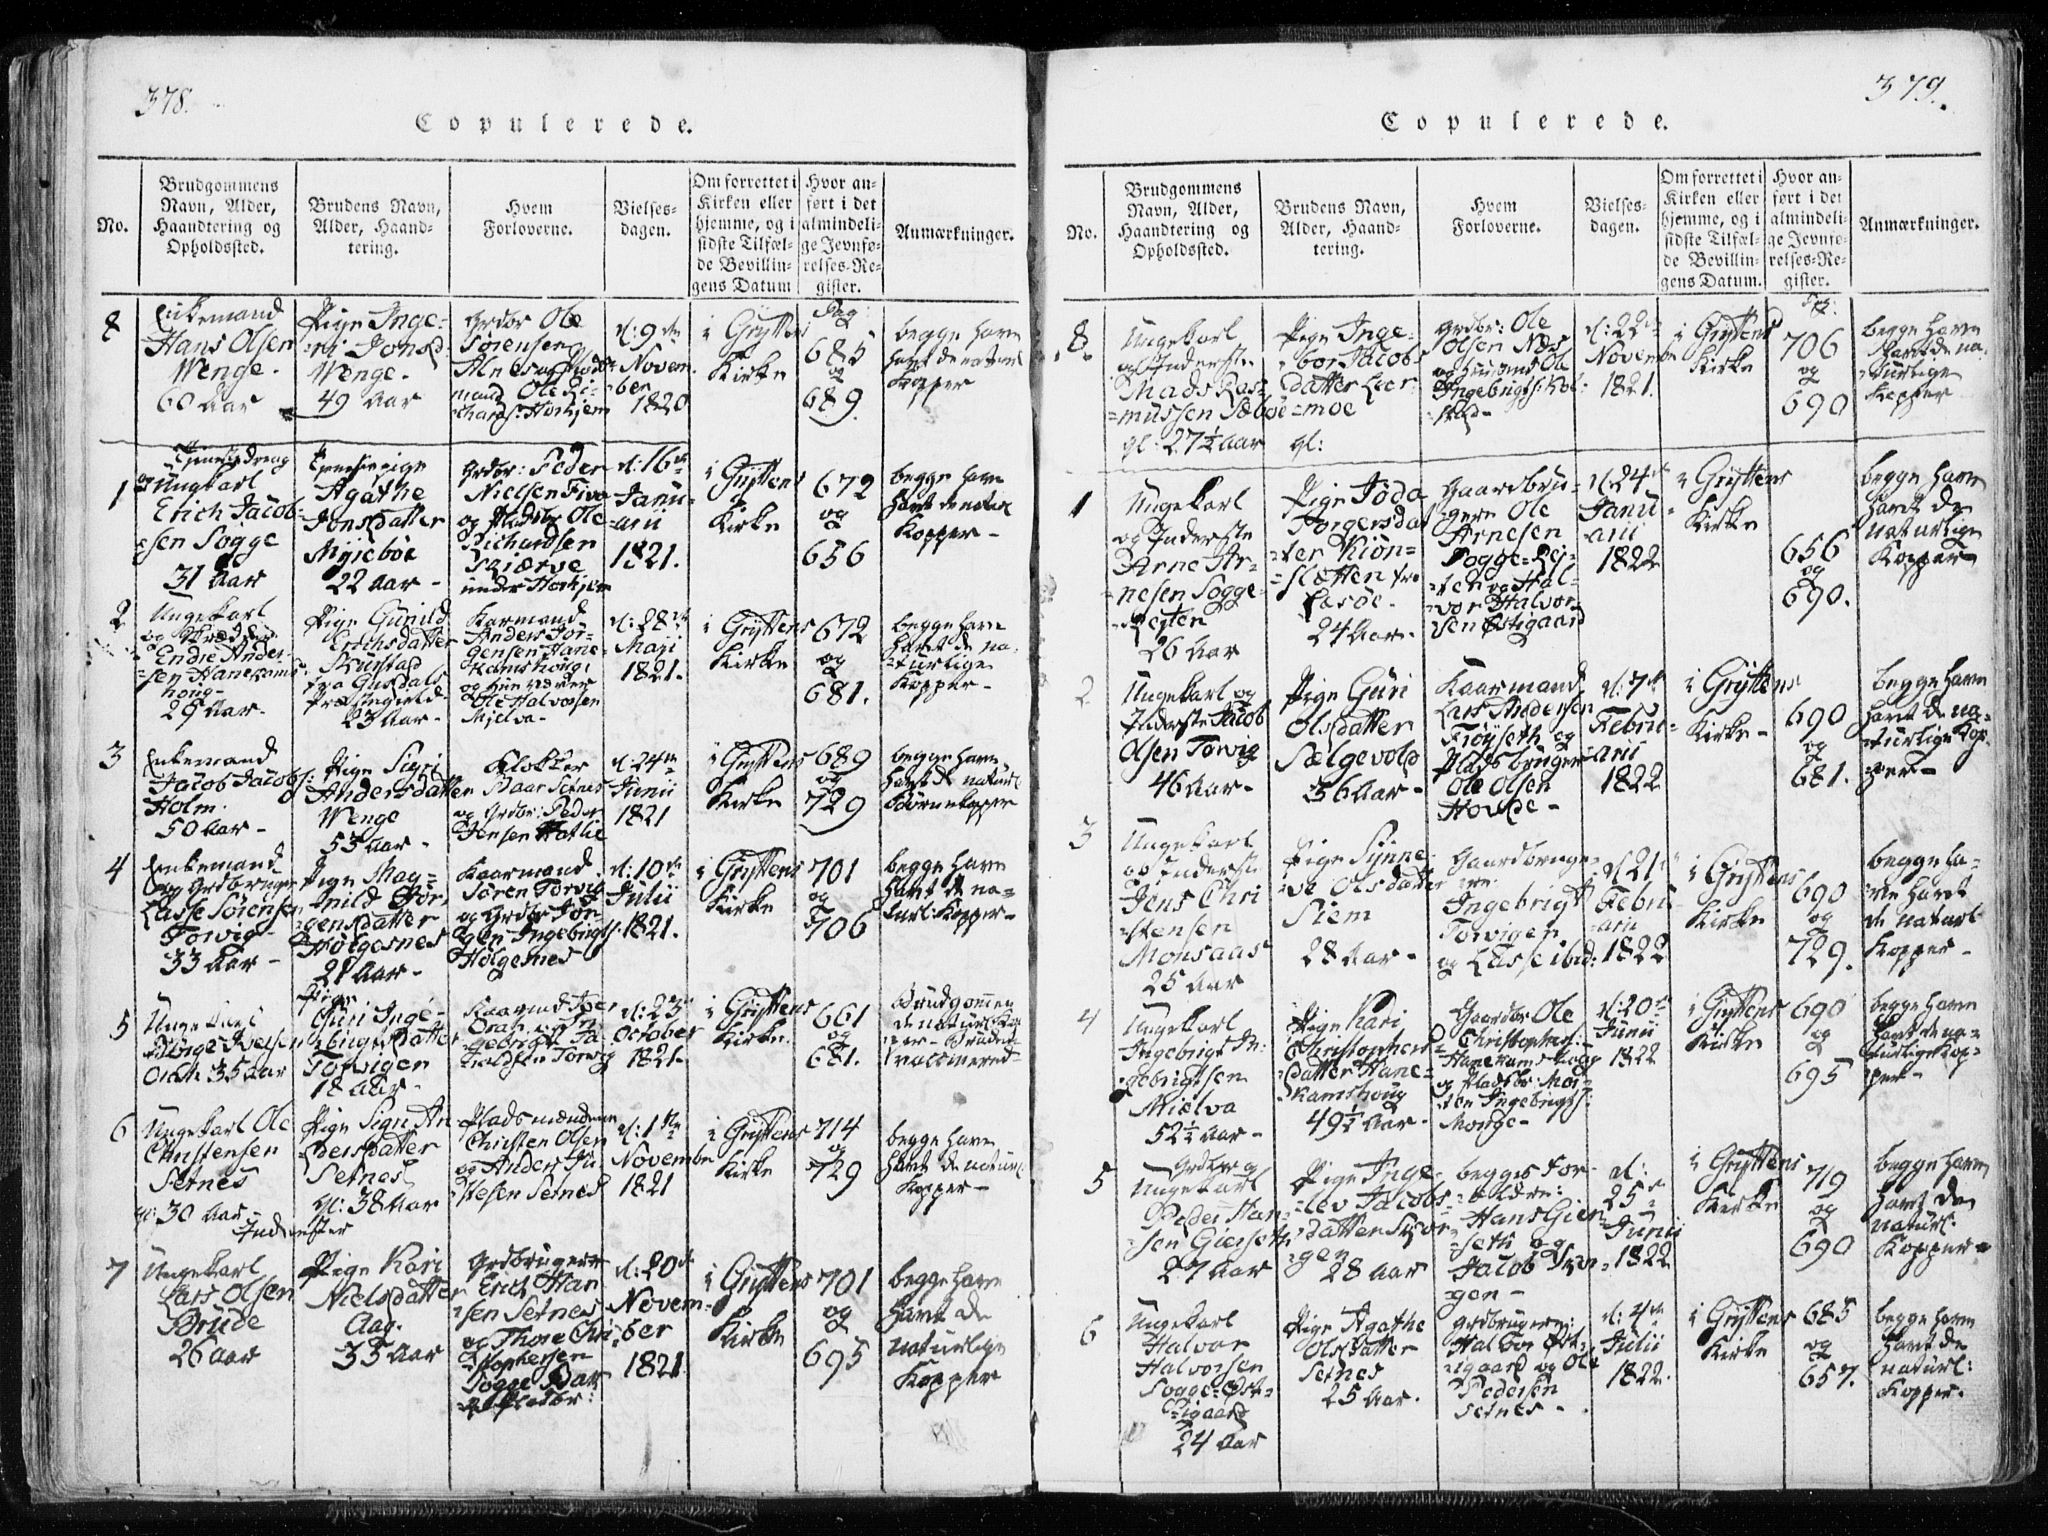 378.
Copulerede.
No.
Brudgommens
Navn, Alder,
Haandtering og
Opholdssted.
Brudens Navn,
Alder, Haand-
tering.
Hvem
Forloverne.
Vielses-
dagen.
Om forrettet i
Kirken eller
hjemme, og i
sidste Tilfæl-
de Bevillin-
gens Datum
Hvor an-
ført i det
almindeli-
ge Jevnfø-
relses-Re-
gister.
Anmærkninger.
8
Enkemand
Hans Olsen
Wenge.
60 Aar
Pige Inge-
Wenge.
49 Aar
Ole
Sörensen
Ole Ri-
d: 9de
Novem-
ber
1820
i Gryttens
Kirke
Pag:
685
og
689.
begge have
havt de naturl
Kopper
1
Tjenestedreng
og Ungkarl
Erich Jacob-
sen Sogge
31 Aar
Tjenestepige
Agathe
Jonsdatter
Myrebøe
22 Aar -
Grdbr: Peder
Nielsen Fiva
og Pladsbr Ole
Richardsen
Skiærve
under Horhjem
d: 16de
Janu-
arii
1821.
i Gryttens
Kirke
672
og
656
begge have
havt de naturl
Kopper -
2
Ungekarl
Endre Ander-
sen Hanekams-
houg-
29 Aar-
Pige Gunild
Erichsdatter
fra Gusdals
Præstegield-
23 Aar-
Kaarmand
Anders Jör-
gensen Hane-
kamshoug
Ole Halvorsen
Mjelva-
d: 28de
Maji
1821.
i Gryttens
Kirke
672
og
681.
begge have
havt de na-
turlige
Kopper-
3
Enkemand
Jacob Jacobs:
Holm.
50 Aar-
Pige Sigri
Andersdatter
Wenge
53 Aar-
Klokker
Baar Setnes
og Grdbr: Peder
Jensen Hatlie
d: 24de
Junii
1821
i Gryttens
Kirke
689
og
729
begge have
havt de naturl
Børnekopper
4
Enkemand
og Grdbruger
Lasse Sörensen
Torvig-
33 Aar-
Pige Mag-
nild Jör-
gensdatter
Hölgenes
21 Aar-
Kaarmand
Sören Torvig
og Grdbr Jör-
gen Ingebrigts.
Hölgenes
d: 10de
Julii
1821.
i Gryttens
Kirke
701
og
706
begge have
havt de na-
turl: Kopper-
5
Ungekarl
Iversen
35 Aar
Pige
Guri Inge-
brigtsdatter
Torvigen
18 Aar-
Kaarmd Iver
Torvig
d: 23de
October
1821.
i Gryttens
Kirke.
661
og
681.
Brudgomen
de naturl Kop-
per- Bruden
vaccineret-
6
Ungekarl Ole
Christensen
Setnes
gl: 30 Aar-
Inderster
Pige Sigri An
dersdatter
Setnes
gl: 38 Aar
Pladsmændene
Christen Olsen
og Anders Ju
stesen Setnes
d: 1ste
Novembr
1821
i Gryttens
Kirke
714
og
729
begge have
havt de naturl.
Kopper-
7
Ungekarl
Lars Olsen
Brude
26 Aar
Pige Kari
Nielsdatter
Aag.
33 Aar
Grdbrugere
Erich Han
sen Setnes
og Thore Chri
stophersen
Sogge Bar
og Pladsbr:
d: 20de
Novem-
ber
1821.
i Gryttens
Kirke
701
og
695
begge have
havt de
naturlige
Kopper
379.
Copulerede.
No.
Brudgommens
Navn, Alder,
Haandtering og
Opholdssted.
Brudens Navn,
Alder, Haand-
tering.
Hvem
Forloverne.
Vielses-
dagen.
Om forrettet i
Kirken eller
hjemme, og i
sidste Tilfæl-
de Bevillin-
gens Datum.
Hvor an-
ført i det
almindeli-
ge Jevnfø-
relses-Re-
gister.
Anmærkninger.
8.
Ungekarl
og Inderste
Mads Ras-
mussen Sæbøe
gl: 27½ Aar
Pige Inge-
bor Jacobs
datter Leer-
moe
gl:
Grdbr: Ole
Olsen Næs
Ole
Ingebrigts: Kol-
stad-
d: 22de
Novembr
1821.
i Gryttens
Kirke
Pag:
706
og
690
begge have
havt de na-
turlige
Kopper
1
Ungekarl
og Inderste
Arne Ar-
nesen Sogge-
Rejten
26 Aar
Pige Joda
Torgersdat
ter Kiön-
sletten fra
Lesöe.
24 Aar-
Gaardbru-
gere Ole
Arnesen
Sogge-Rej-
ten og Hal-
vor Halvor
sen Østigaard
d: 24de
Janu-
arii
1822
i Gryttens
Kirke
656
og
690.
begge have
havt de
naturlige
Kopper-
2
Ungekarl og
Inderste Jacob
Olsen Torvig
46 Aar-
Pige Guri
Olsdatter
Sælgevold
36 Aar-
Kaarmand
Lars Andersen
Fröyseth og
Pladsbruger
Ole Olsen
Hovde-
d: 7de
Febru-
arii
1822
i Gryttens
Kirke-
690
og
681.
begge have
havt de na-
turlige Kop-
per-
3
Ungekarl
og Inderste
Jens Chri
stensen
Monsaas
25 Aar
Pige Synne
ve Olsdatter
Siem
28 Aar-
Gaardbruge-
re
Ingebrigt
Torvigen
og Lasse ibid:
d: 21de
Febru-
arii
1822
i Gryttens
Kirke
690
og
729.
begge ha-
ve havt
de naturl.
Kopper-
4
Ungekarl
Ingebrigt In-
gebrigtsen
Mielva
52½ Aar-
Pige Kari
Christophers-
datter Hane-
kamshoug
49½ Aar-
Gaardbr Ole
Christophers:
Hanekamshoug
og Pladsbr: Mor-
ten Ingebrigts:
Monge-
d: 20de
Junii
1822
i Gryttens
Kirke
690
og
695
begge have
havt de na-
turlige Kop-
per-
5
Grdbr og
Ungekarl
Peder Han-
sen Gierseth
27 Aar
Pige Inge-
lev Jacobs-
datter
gen
28 Aar
begges For-
ældre:
Hans Gier-
seth og
Jacob
gen-
d:
25de
Junii
1822
i Gryttens
Kirke
719
og
690
begge have
havt de
naturl.
Kopper-
6
Ungekarl
Halvor
Halvorsen
Sogge-Øst-
igaard
24 Aar
Pige Agathe
Olsdatter
Setnes
25 Aar.
Grdbrugerne:
Halvor Øst-
igaard og Ole
Pedersen
Setnes-
d: 4de
Julii
1822.
i Gryttens
Kirke
685
og
657.
begge have
havt de
naturl:
Kopper.